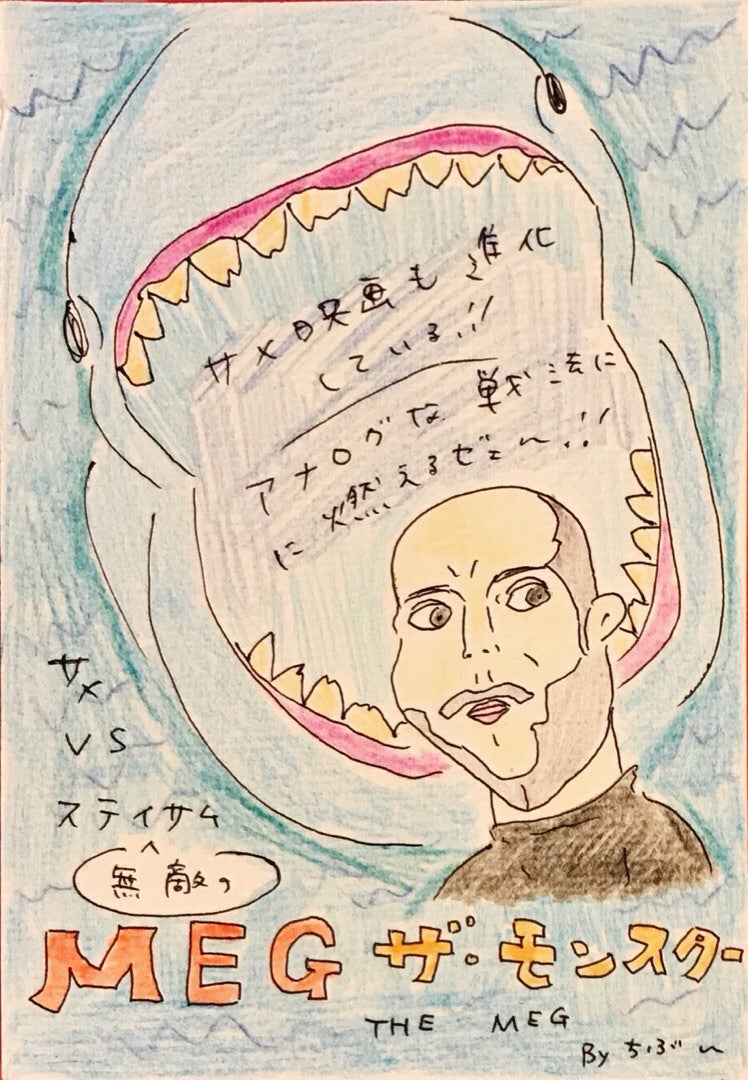 サメ映画も進化
している!!
アナログな戦法に
に燃えるゼェ〜!!
サメ
VS
ステイサム
無敵の
MEG ザ・モンスター
THE MEG
By ちぶ〜